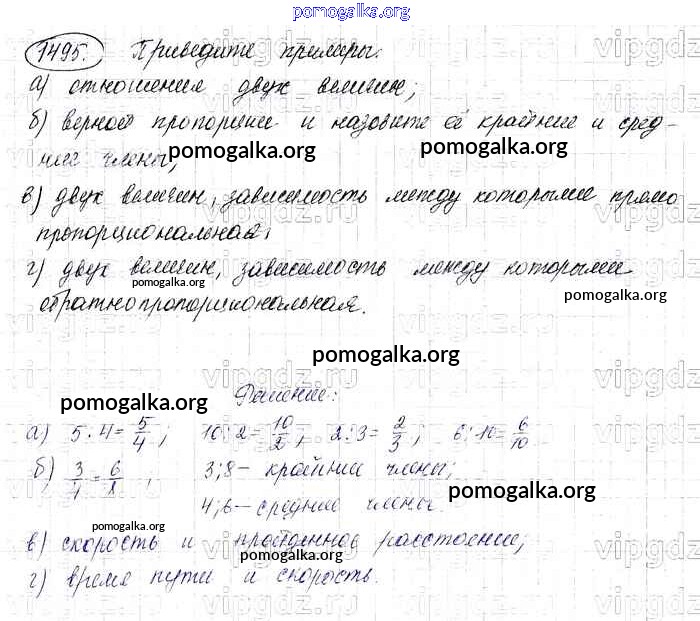 pomogalka.org
1495. Приведите примеры:
а) отношения двух величин;
б) верной пропорции и назовите её крайние и сред-
ние члены;
pomogalka.org pomogalka.org
в) двух величин, зависимость между которыми прямо
пропорциональная;
г) двух величин, зависимость между которыми
обратно пропорциональная.
pomogalka.org
pomogalka.org
pomogalka.org
Решение:
pomogalka.org
а) 5:4=5/4; 10:2=10/2, 2:3=2/3; 6:10=6/10
б) 3/4=6/8, 3;8- крайние члены;
4;6-средние члены.
pomogalka.org
pomogalka.org
в) скорость и пройденное расстояние;
pomogalka.org
г) время пути и скорость.